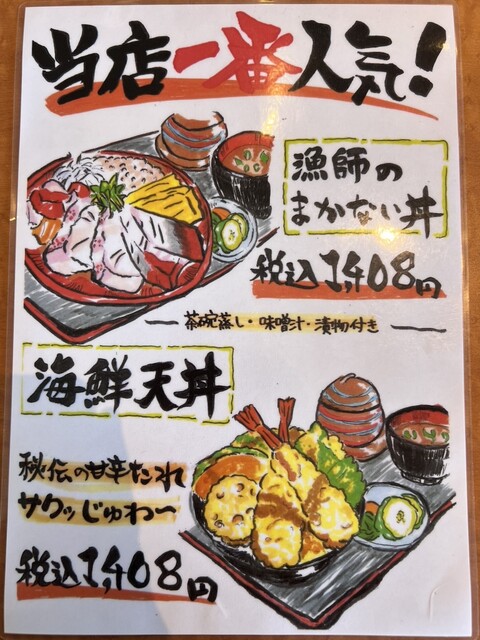 当店一番人気!
漁師の
まかない丼
税込1,408円
茶碗蒸し・味噌汁・漬物付き
海鮮天丼
秘伝の甘辛たれ
サクッじゅわ〜
税込1,408円